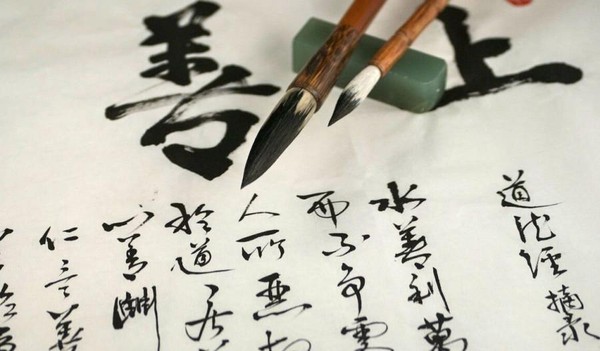 上善
道德經摘录
水善利萬
而不争處
人所惡故
於道居
心善淵
仁言善